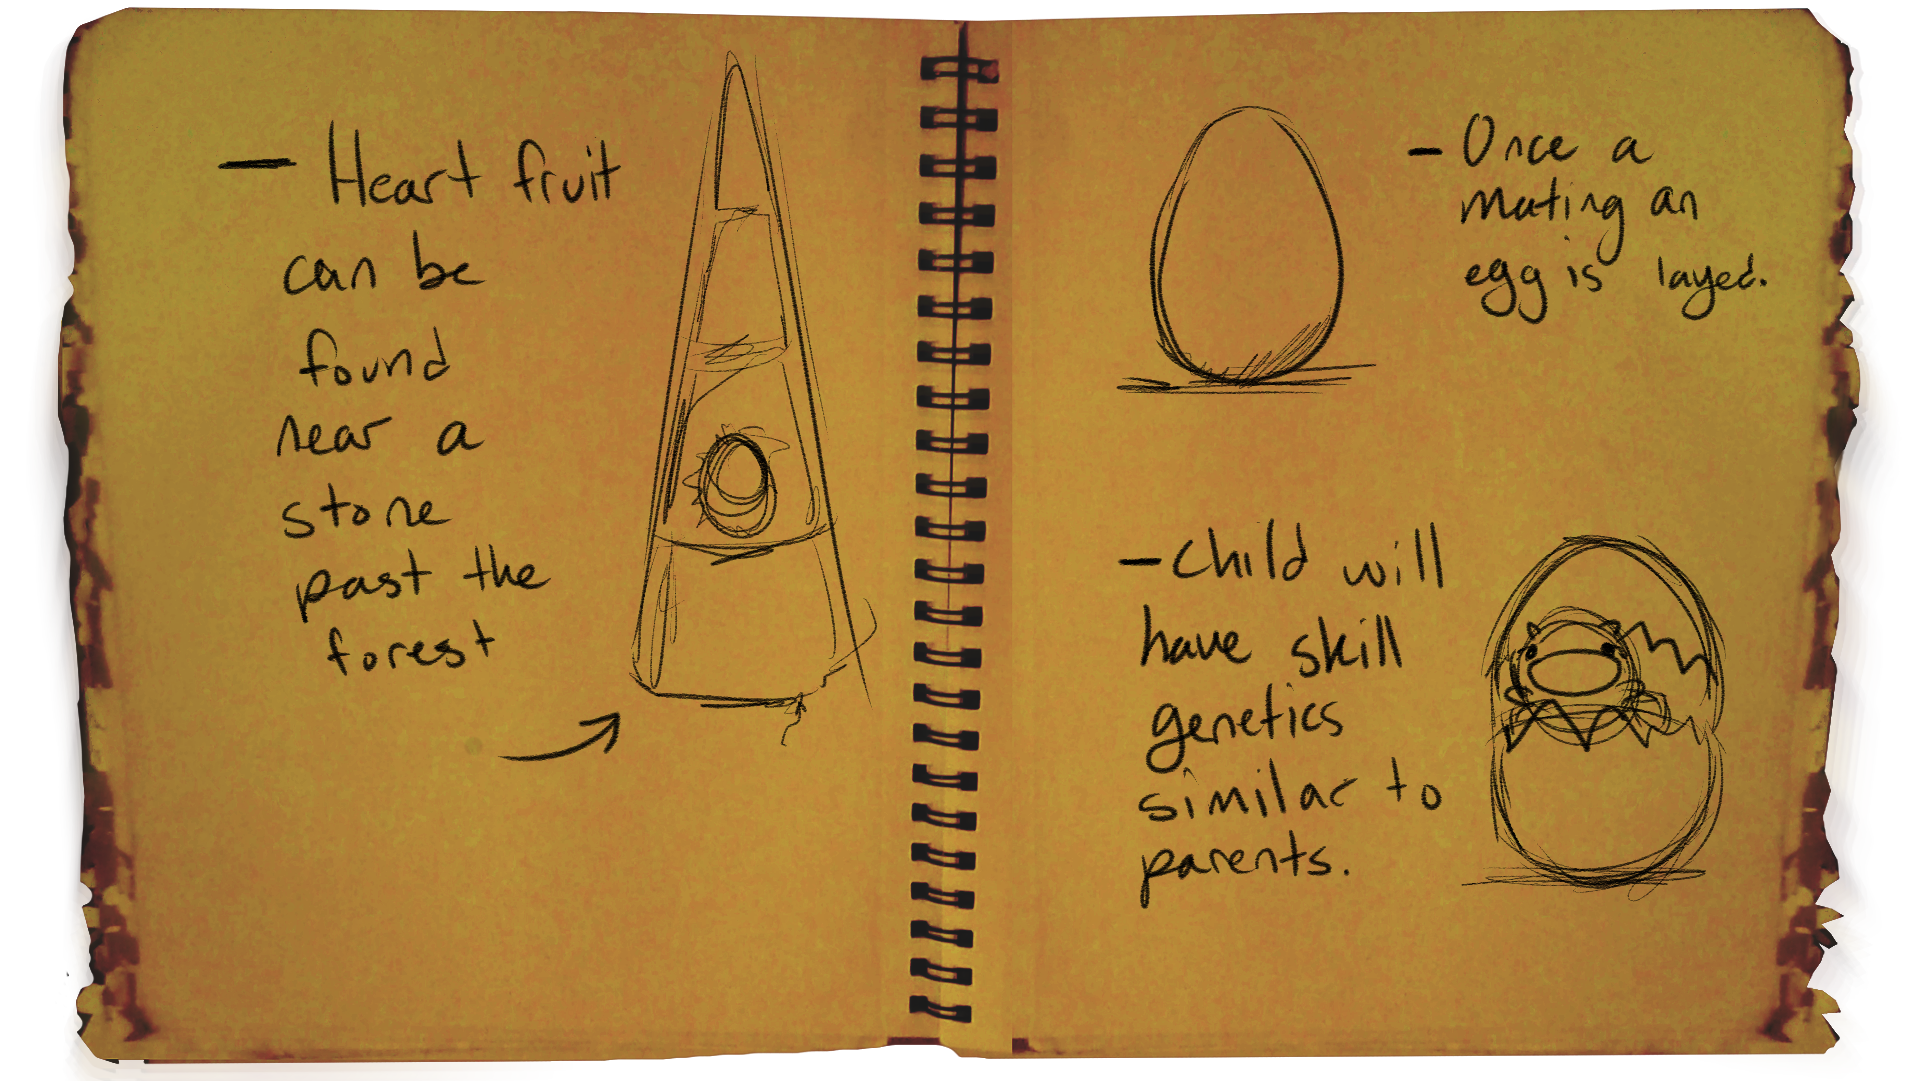 — Heart fruit
can be
found
near a
stone
past the
forest
- Once a
mating an
egg is layed.
- Child will
have skill
genetics
similar to
parents.